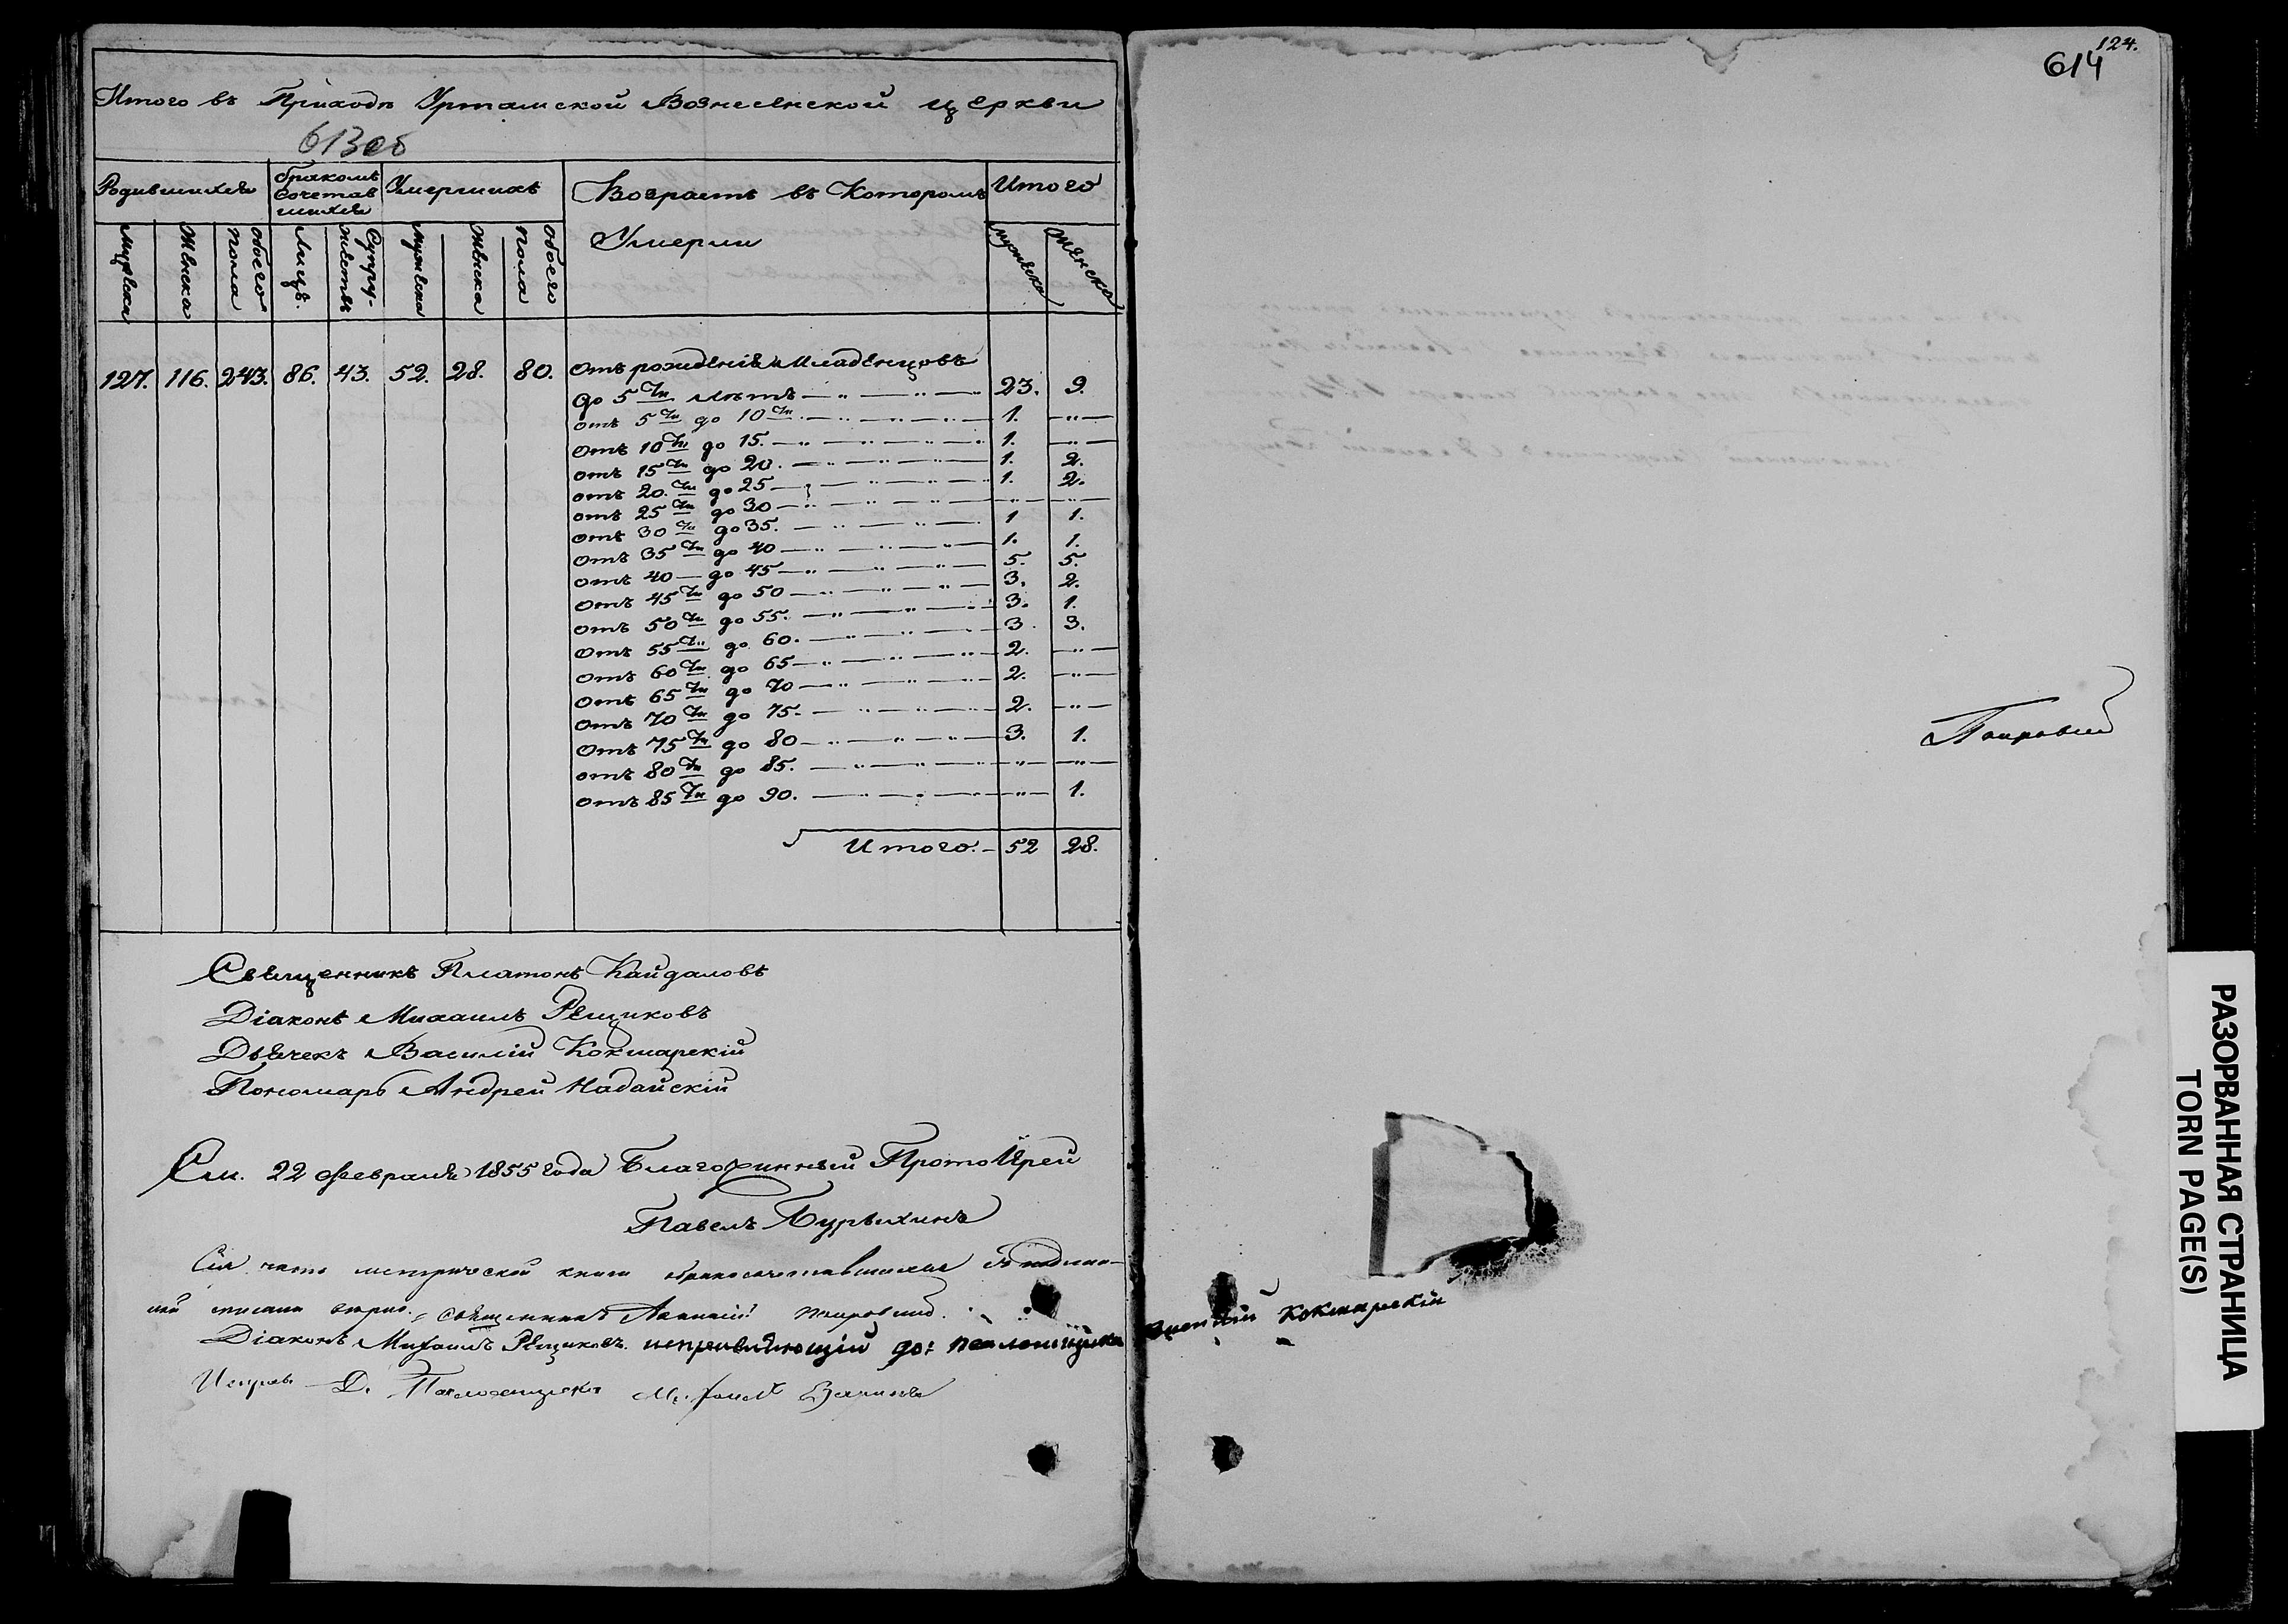 Итого въ Приходѣ Уртамской Вознесенской церкви
613об
Родившихся
бракомъ сочетавшихся
Умершихъ
Возрастъ въ Которомъ Умерли
Итого
Мужеска
Женска
Обоего пола
Лицъ.
Супружествъ
Мужеска
Женска
Обоего пола
мужеска
женска
127. 116. 243. 86. 43. 52. 28. 80.
Отъ рожденія Младенцовъ
до 5ти лѣтъ — „ — „ — 23. 9.
отъ 5ти до 10ти — „ — „ — 1. — „ —
отъ 10ти до 15. — „ — „ — 1. — „ —
отъ 15ти до 20. — „ — „ — 1. 2.
отъ 20.ти до 25 — „ — „ — 1. 2.
отъ 25ти до 30 — „ — „ — „ — „ —
отъ 30ти до 35. — „ — „ — 1 1.
отъ 35ти до 40 — „ — „ — 1. 1.
отъ 40 — до 45 — „ — „ — 5. 5.
отъ 45ти до 50 — „ — „ — 3. 2.
отъ 50ти до 55. — „ — „ — 3. 1.
отъ 55ти до 60. — „ — „ — 3. 3.
отъ 60ти до 65 — „ — „ — 2. — „ —
отъ 65ти до 70 — „ — „ — 2. — „ —
отъ 70ти до 75. — „ — „ — 2. — „ —
отъ 75ти до 80 — „ — „ — 3. 1.
отъ 80ти до 85. — „ — „ — „ — „ —
отъ 85ти до 90. — „ — „ — „ — 1.
Итого. — 52 28.
Священникъ Платонъ Кайдаловъ
Діаконъ Михаилъ Рещиковъ
Дьячекъ Василій Кокшарскій
Пономарь Андрей Надайскій
См. 22 февраля 1855 года Благочинный ПротоІерей
Павелъ
Сія часть метрической книги бракосочетавшихся
священникъ
Діаконъ Михаилъ Рещиковъ. исправляющій до: псаломщика Кокшарскій
Исправ. Д. Псаломщика
124.
614
РАЗОРВАННАЯ СТРАНИЦА
TORN PAGE(S)